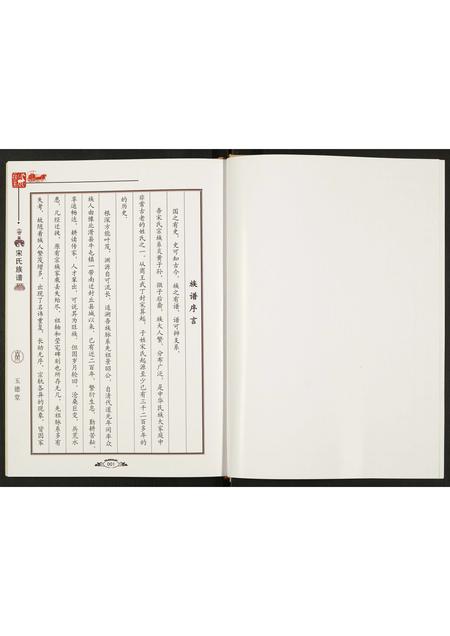 族谱序言
国之有史，史可知古今，族之有谱，谱可辨支系。
吾宋氏宗族系炎黄子孙，微子后裔，族大人繁，分布广泛，是中华民族大家庭中
非常古老的姓氏之一。从商王武丁封宋算起，子姓宋氏起源至少已有三千二百多年的
的历史。
根深方能叶茂，渊源自可流长，追溯吾族脉系先祖景昭公，自清代道光年间率众
族人由豫北滑县牛屯镇一带南迁封丘县城以来，已有近二百年，繁衍生息，勤耕苦耘，
享运畅达，耕读传家，人才辈出，可说其为旺族。但因岁月轮回，沧桑巨变，兵荒水
患，几经迁徙，原有宗族家底丢失殆尽，祖轴和茔宅碑刻也所存无几，先祖脉系多有
失考，故随着族人繁茂增多，出现了名讳重复，长幼无序，宗轨各异的现象，皆因家
宋氏族谱
玉德堂
001